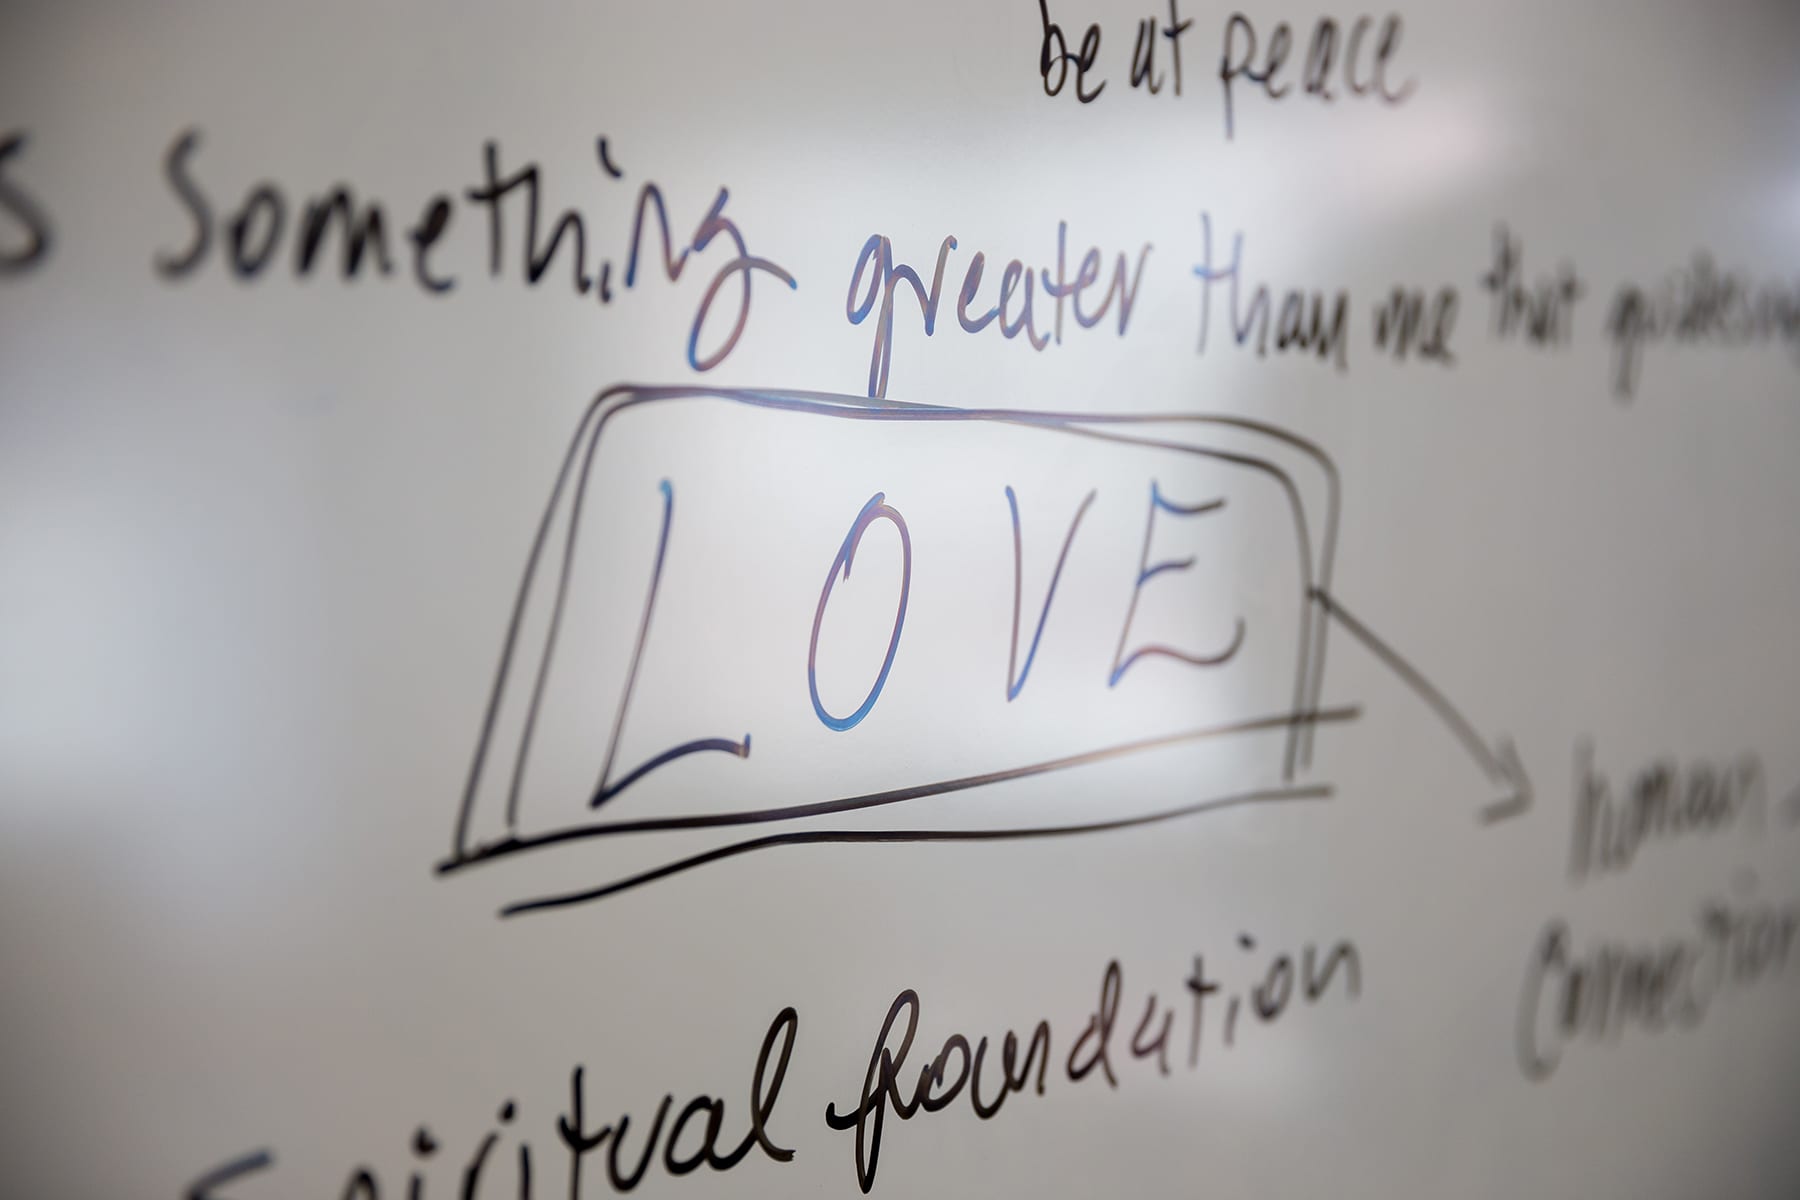 be at peace
s Something greater than me that
LOVE
human
Connection
Spiritual foundation